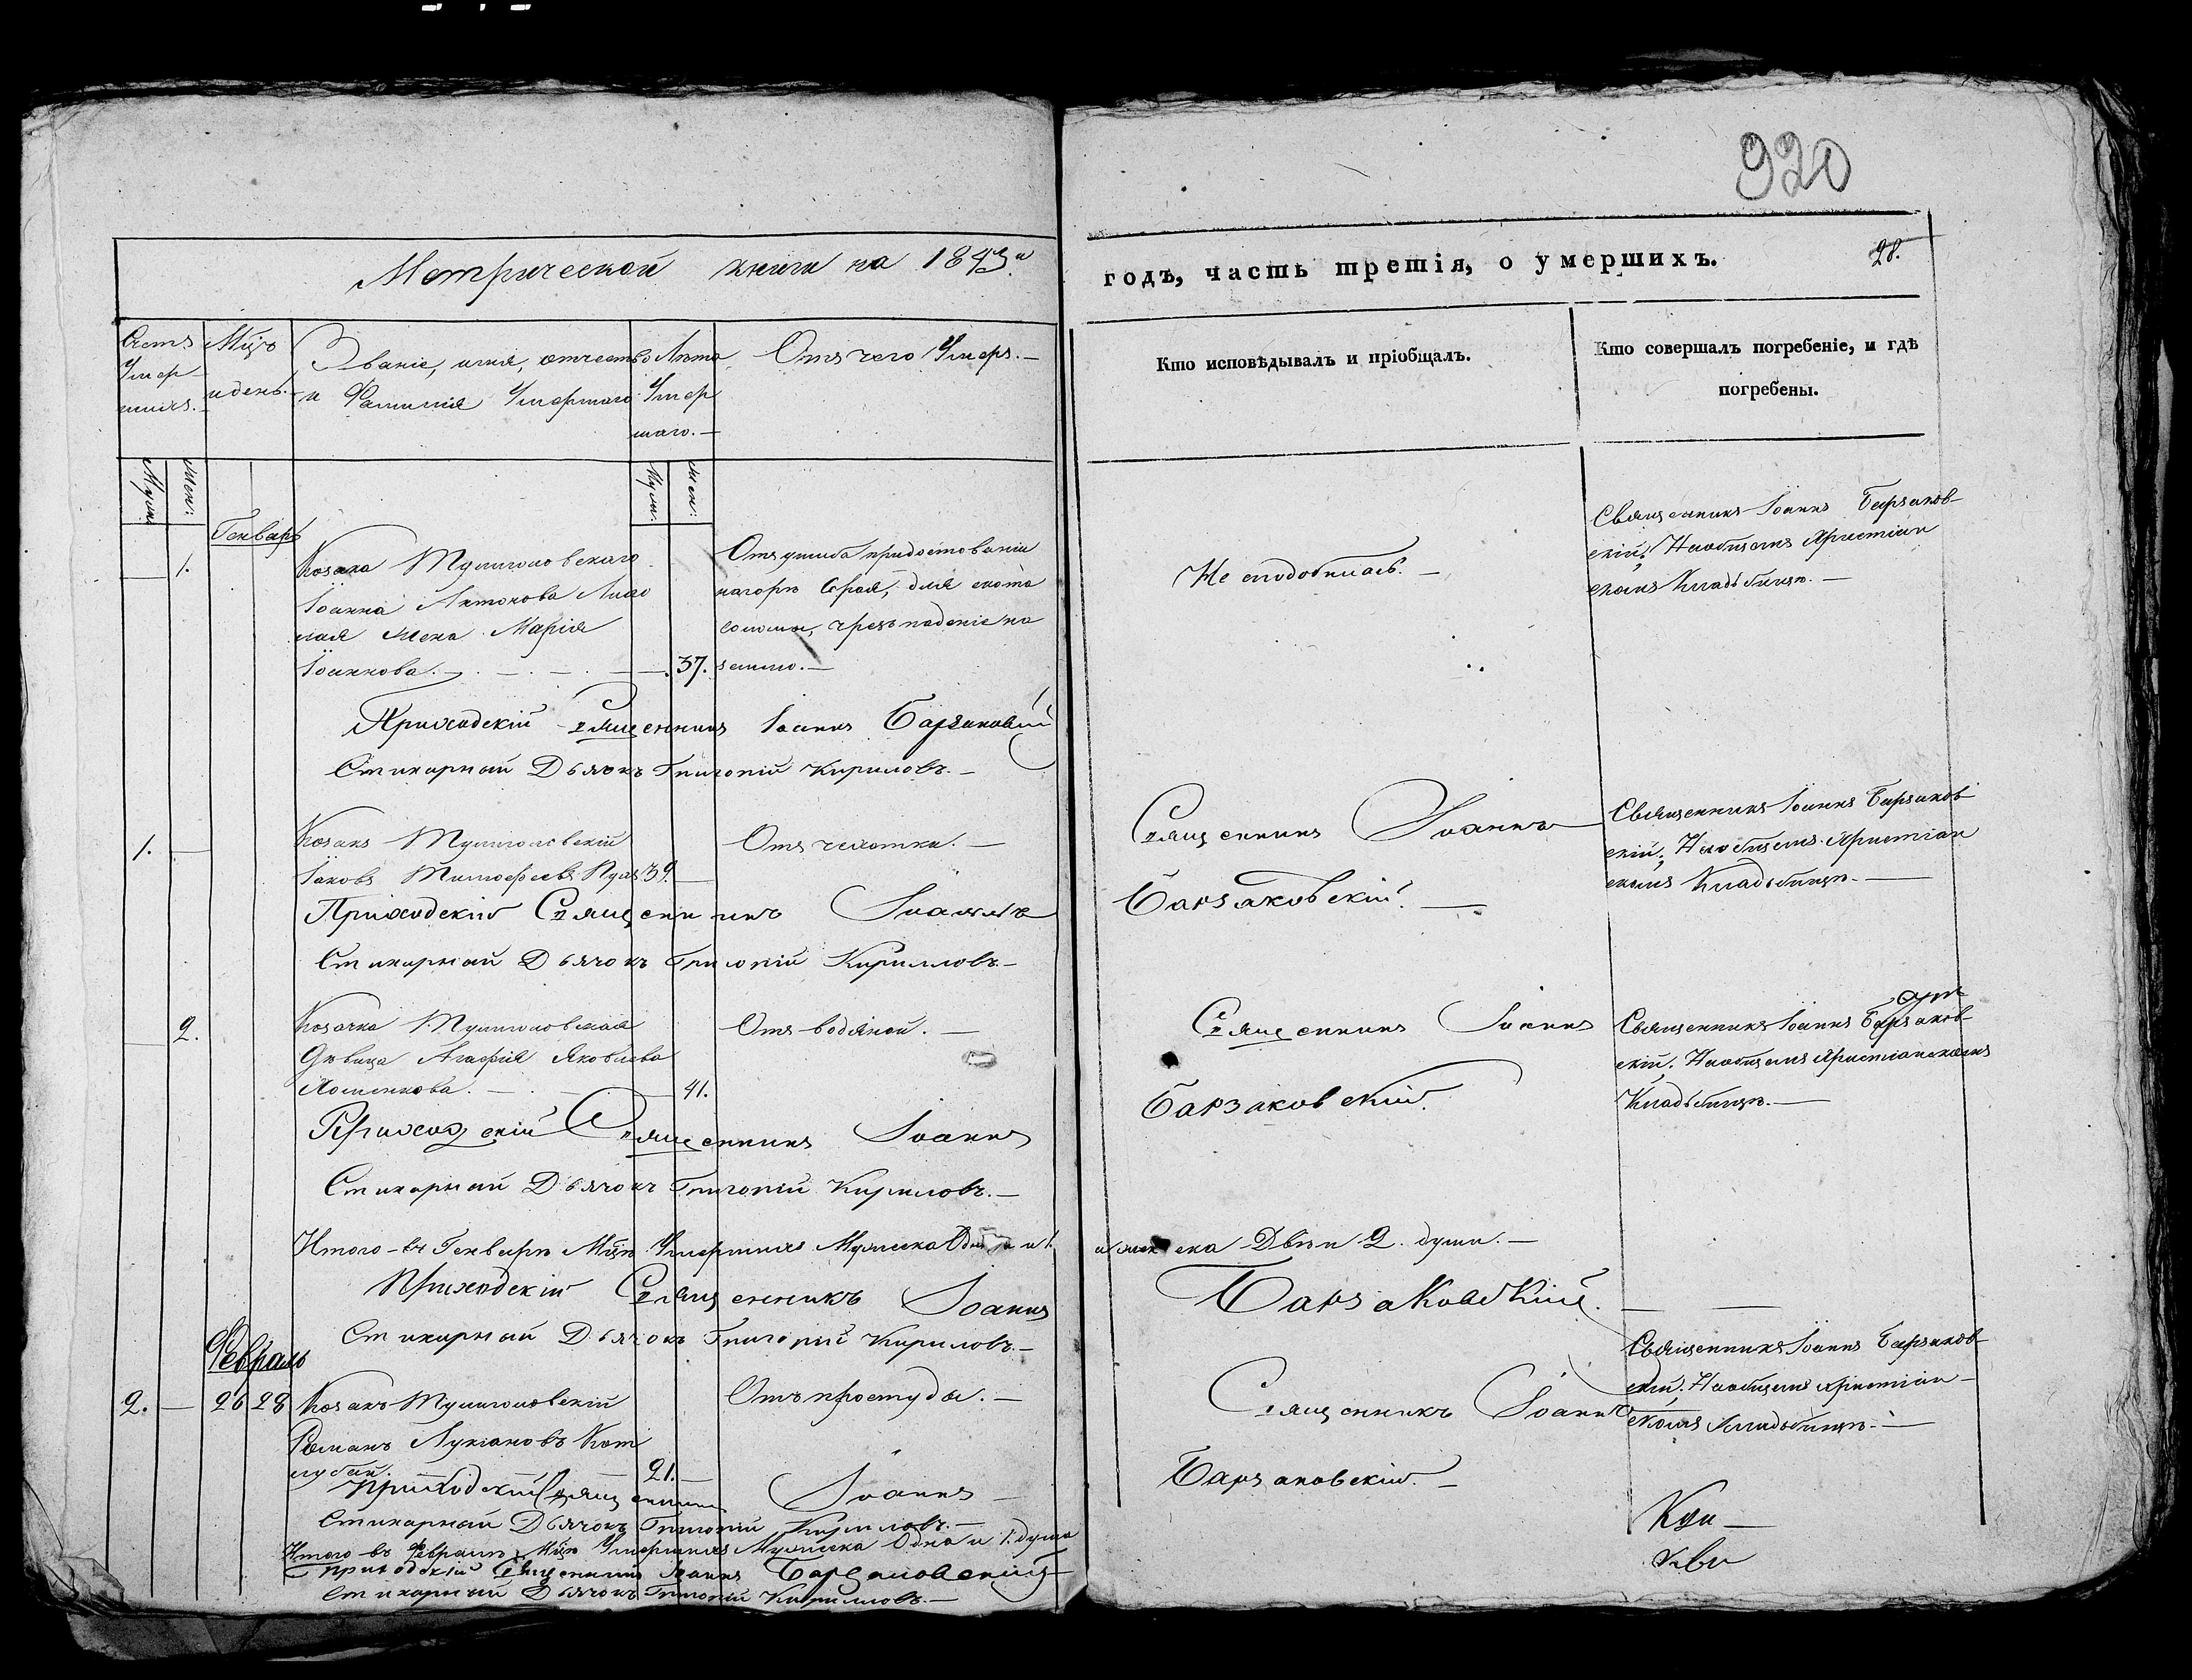 920
Метрической книги на 1843й
годъ, часть третія, о умершихъ.
28.
Счетъ
Умер-
шихъ.
Мѣцъ
и день.
Званіе, имя, отчество
и Фамилія Умершаго
Лѣта
Умер
шаго.—
Отъ чего Умеръ.—
Кто исповѣдывалъ и пріобщалъ.
Кто совершалъ погребеніе, и гдѣ
погребены.
Муж:
Жен:
Муж.
Жен:
Генварь
— 1.
Козака
Іоанна Антонова
жена Марія
Іоаннова.— — 37.
Отъ ушиба при доставаніи
на горѣ Сарая, для скота
соломы, чрезъ паденіе на
землю.—
Не сподобилась.—
Священникъ Іоаннъ Барзаков-
скій; На общемъ Христіан
скомъ Кладбищѣ.—
Приходскій Священникъ Іоаннъ Барзаковскій
Стихарный Дьячокъ Григорій Кириловъ.—
1. —
Козакъ
Іаковъ Тимофеевъ 39. —
Отъ чахотки.—
Священникъ Іоаннъ
Барзаковскій.—
Священникъ Іоаннъ Барзаков-
скій; На общемъ Христіан
скомъ Кладбищѣ.—
Приходскій Священникъ Іоаннъ
Стихарный Дьячокъ Григорій Кирилловъ.—
— 2.
Козачка
Дѣвица Агафія Яковлева
Хоменкова.— — 41.
Отъ водяной.—
Священникъ Іоаннъ
Барзаковскій.
Священникъ Іоаннъ Барзаков-
скій; На общемъ Христіанскомъ
Кладбищѣ.—
Приходскій Священникъ Іоаннъ
Стихарный Дьячокъ Григорій Кириловъ.—
Итого въ Генварѣ Мцѣ Умершихъ Мужеска Одна и 1.
и женска Двѣ и 2. души.—
Приходскій Священникъ Іоаннъ
Барзаковскій.
Стихарный Дьячокъ Григорій Кириловъ.—
Февраль
2. — 26 28
Козакъ
Романъ Лукіановъ Кот
лубай. 21.—
Отъ простуды.—
Священникъ Іоаннъ
Барзаковскій.—
Священникъ Іоаннъ Барзаков-
скій; На общемъ Христіан-
скомъ Кладбищѣ.—
Приходскій Священникъ Іоаннъ
Стихарный Дьячокъ Григорій Кириловъ.—
Итого въ Февралѣ Мцѣ Умершихъ Мужеска Одна и 1. душа
Приходскій Священникъ Іоаннъ Барзаковскій
Стихарный Дьячокъ Григорій Кирилловъ.—